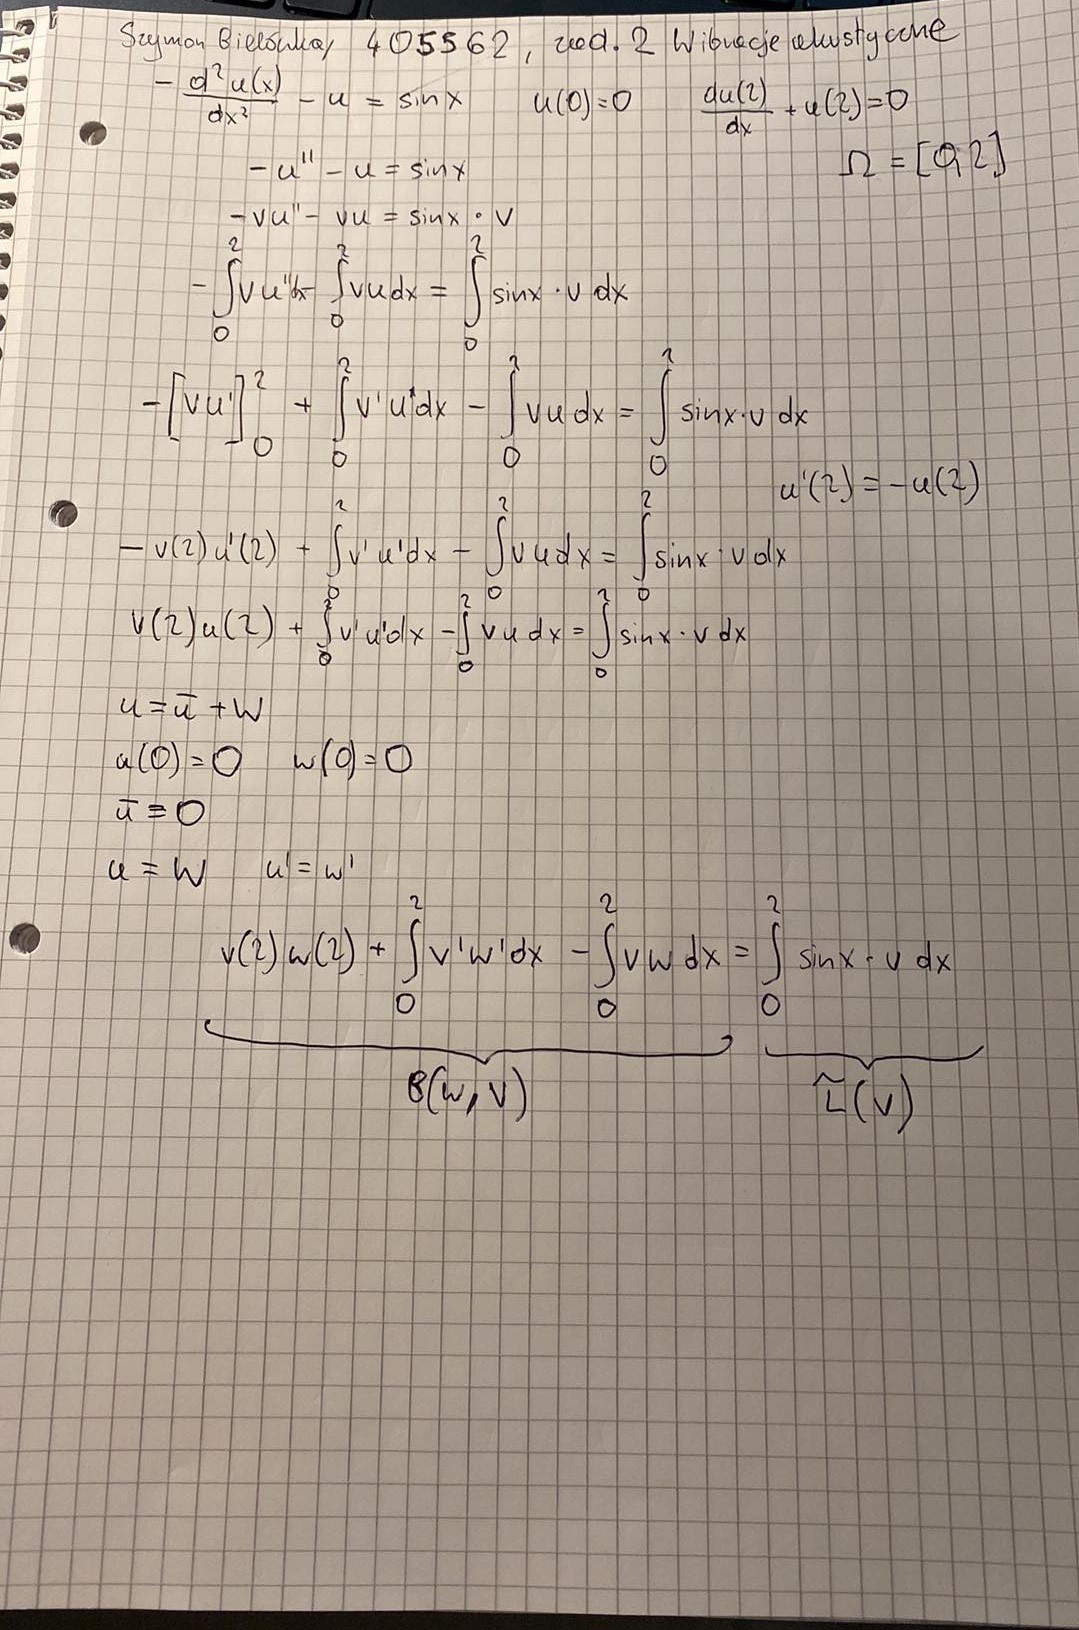 Szymon Bielówka, 405562, zad. 2 Wibracje akustyczne
- d²u(x)/dx² - u = sinx u(0)=0 du(2)/dx + u(2)=0
Ω = [0,2]
-u'' - u = sinx
-vu'' - vu = sinx · v
- ∫₀² vu''dx - ∫₀² vu dx = ∫₀² sinx · v dx
- [vu']₀² + ∫₀² v'u'dx - ∫₀² vu dx = ∫₀² sinx·v dx
u'(2) = -u(2)
- v(2)u'(2) + ∫₀² v'u'dx - ∫₀² vu dx = ∫₀² sinx · v dx
v(2)u(2) + ∫₀² v'u'dx - ∫₀² vu dx = ∫₀² sinx · v dx
u = ū + w
u(0) = 0 w(0) = 0
ū ≡ 0
u = w u' = w'
v(2)w(2) + ∫₀² v'w'dx - ∫₀² vw dx = ∫₀² sinx · v dx
B(w,v) L̃(v)